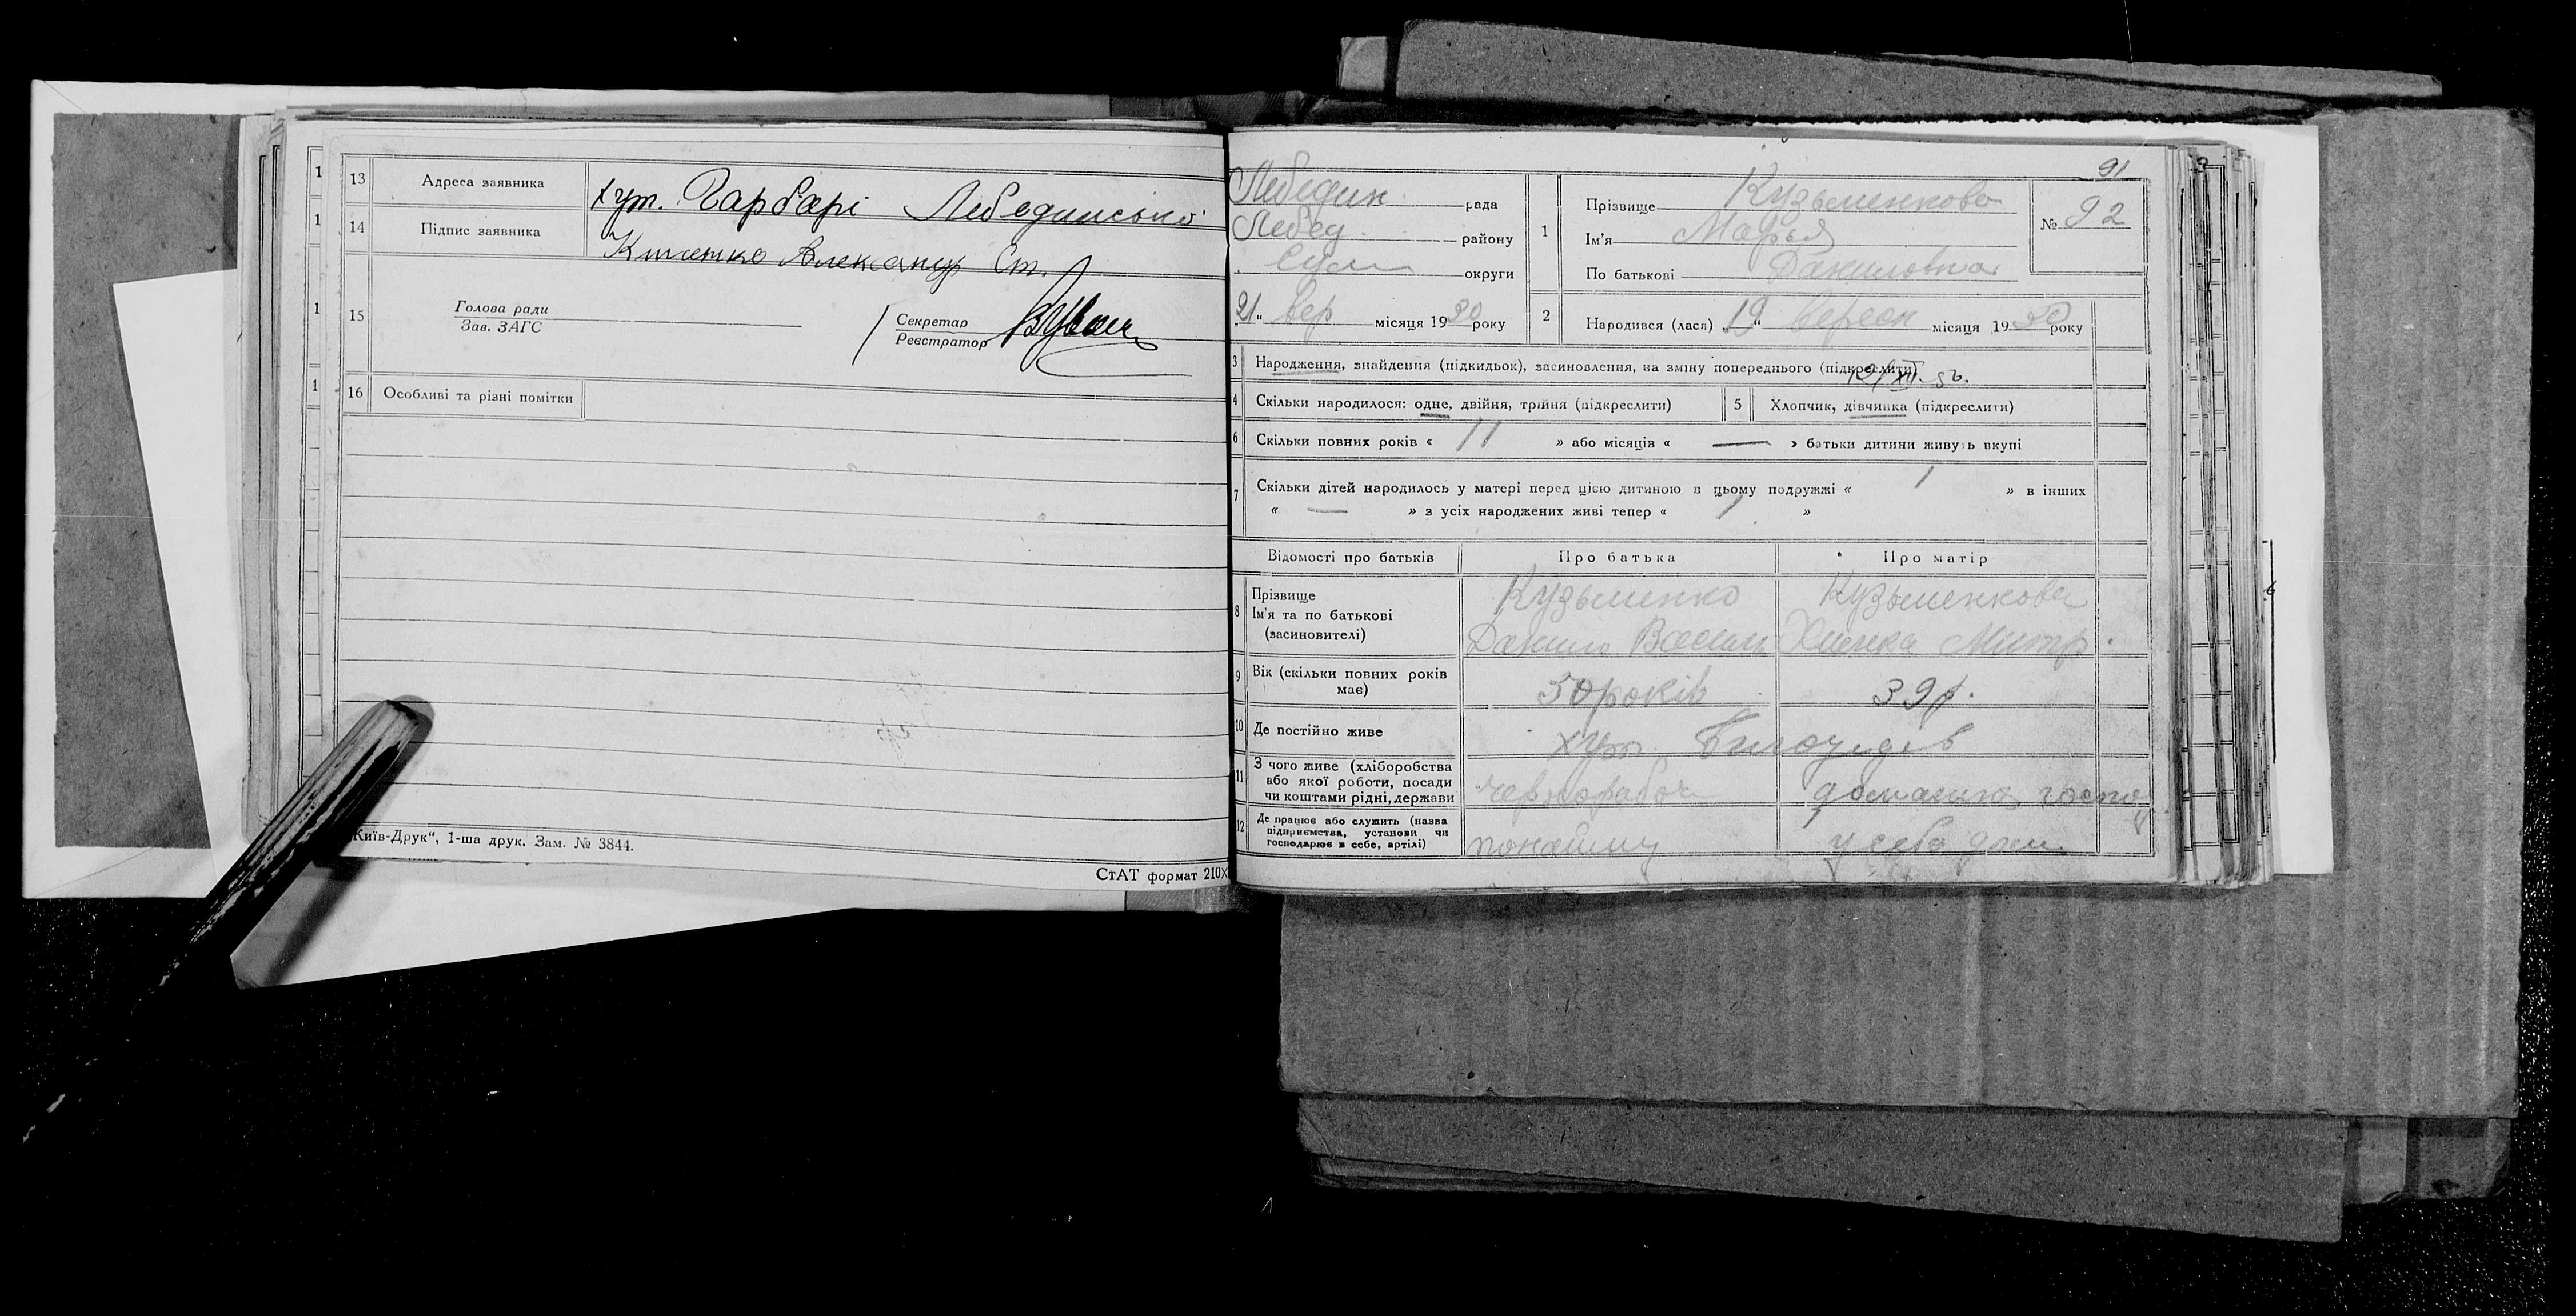 13 Адреса заявника хут. Гарбарі Лебединської
14 Підпис заявника Александр Ст.
15 Голова ради
Зав. ЗАГС
Секретар
Реєстратор
16 Особливі та різні помітки
Київ-Друк“, 1-ша друк. Зам. № 3844.
СтАТ формат 210х
91
Лебедин. рада
Лебед. району
Сум округи
„21“ вер місяця 1930 року
1 Прізвище Кузьменкова
Ім'я Марья
По батькові Даниловна
№ 92
2 Народився (лася) „19“ вересн місяця 1930 року
3 Народження, знайдення (підкидьок), засиновлення, на зміну попереднього (підкреслити)
XII. 56.
4 Скільки народилося: одне, двійня, трійня (підкреслити) 5 Хлопчик, дівчинка (підкреслити)
6 Скільки повних років « 11 » або місяців « — » батьки дитини живуть вкупі
7 Скільки дітей народилось у матері перед цією дитиною в цьому подружжі « 1 » в інших
« — » з усіх народжених живі тепер « 1 »
Відомості про батьків Про батька Про матір
8 Прізвище Кузьменко Кузьменкова
Ім'я та по батькові
(засиновителі) Данило Васил Митр.
9 Вік (скільки повних років
має) 50 років 39 р.
10 Де постійно живе хут.
11 З чого живе (хліборобства
або якої роботи, посади
чи коштами рідні, держави чернорабоч домашнє госпо
12 Де працює або служить (назва
підприємства, установи чи
господарює в себе, артілі) по найму у себе дом